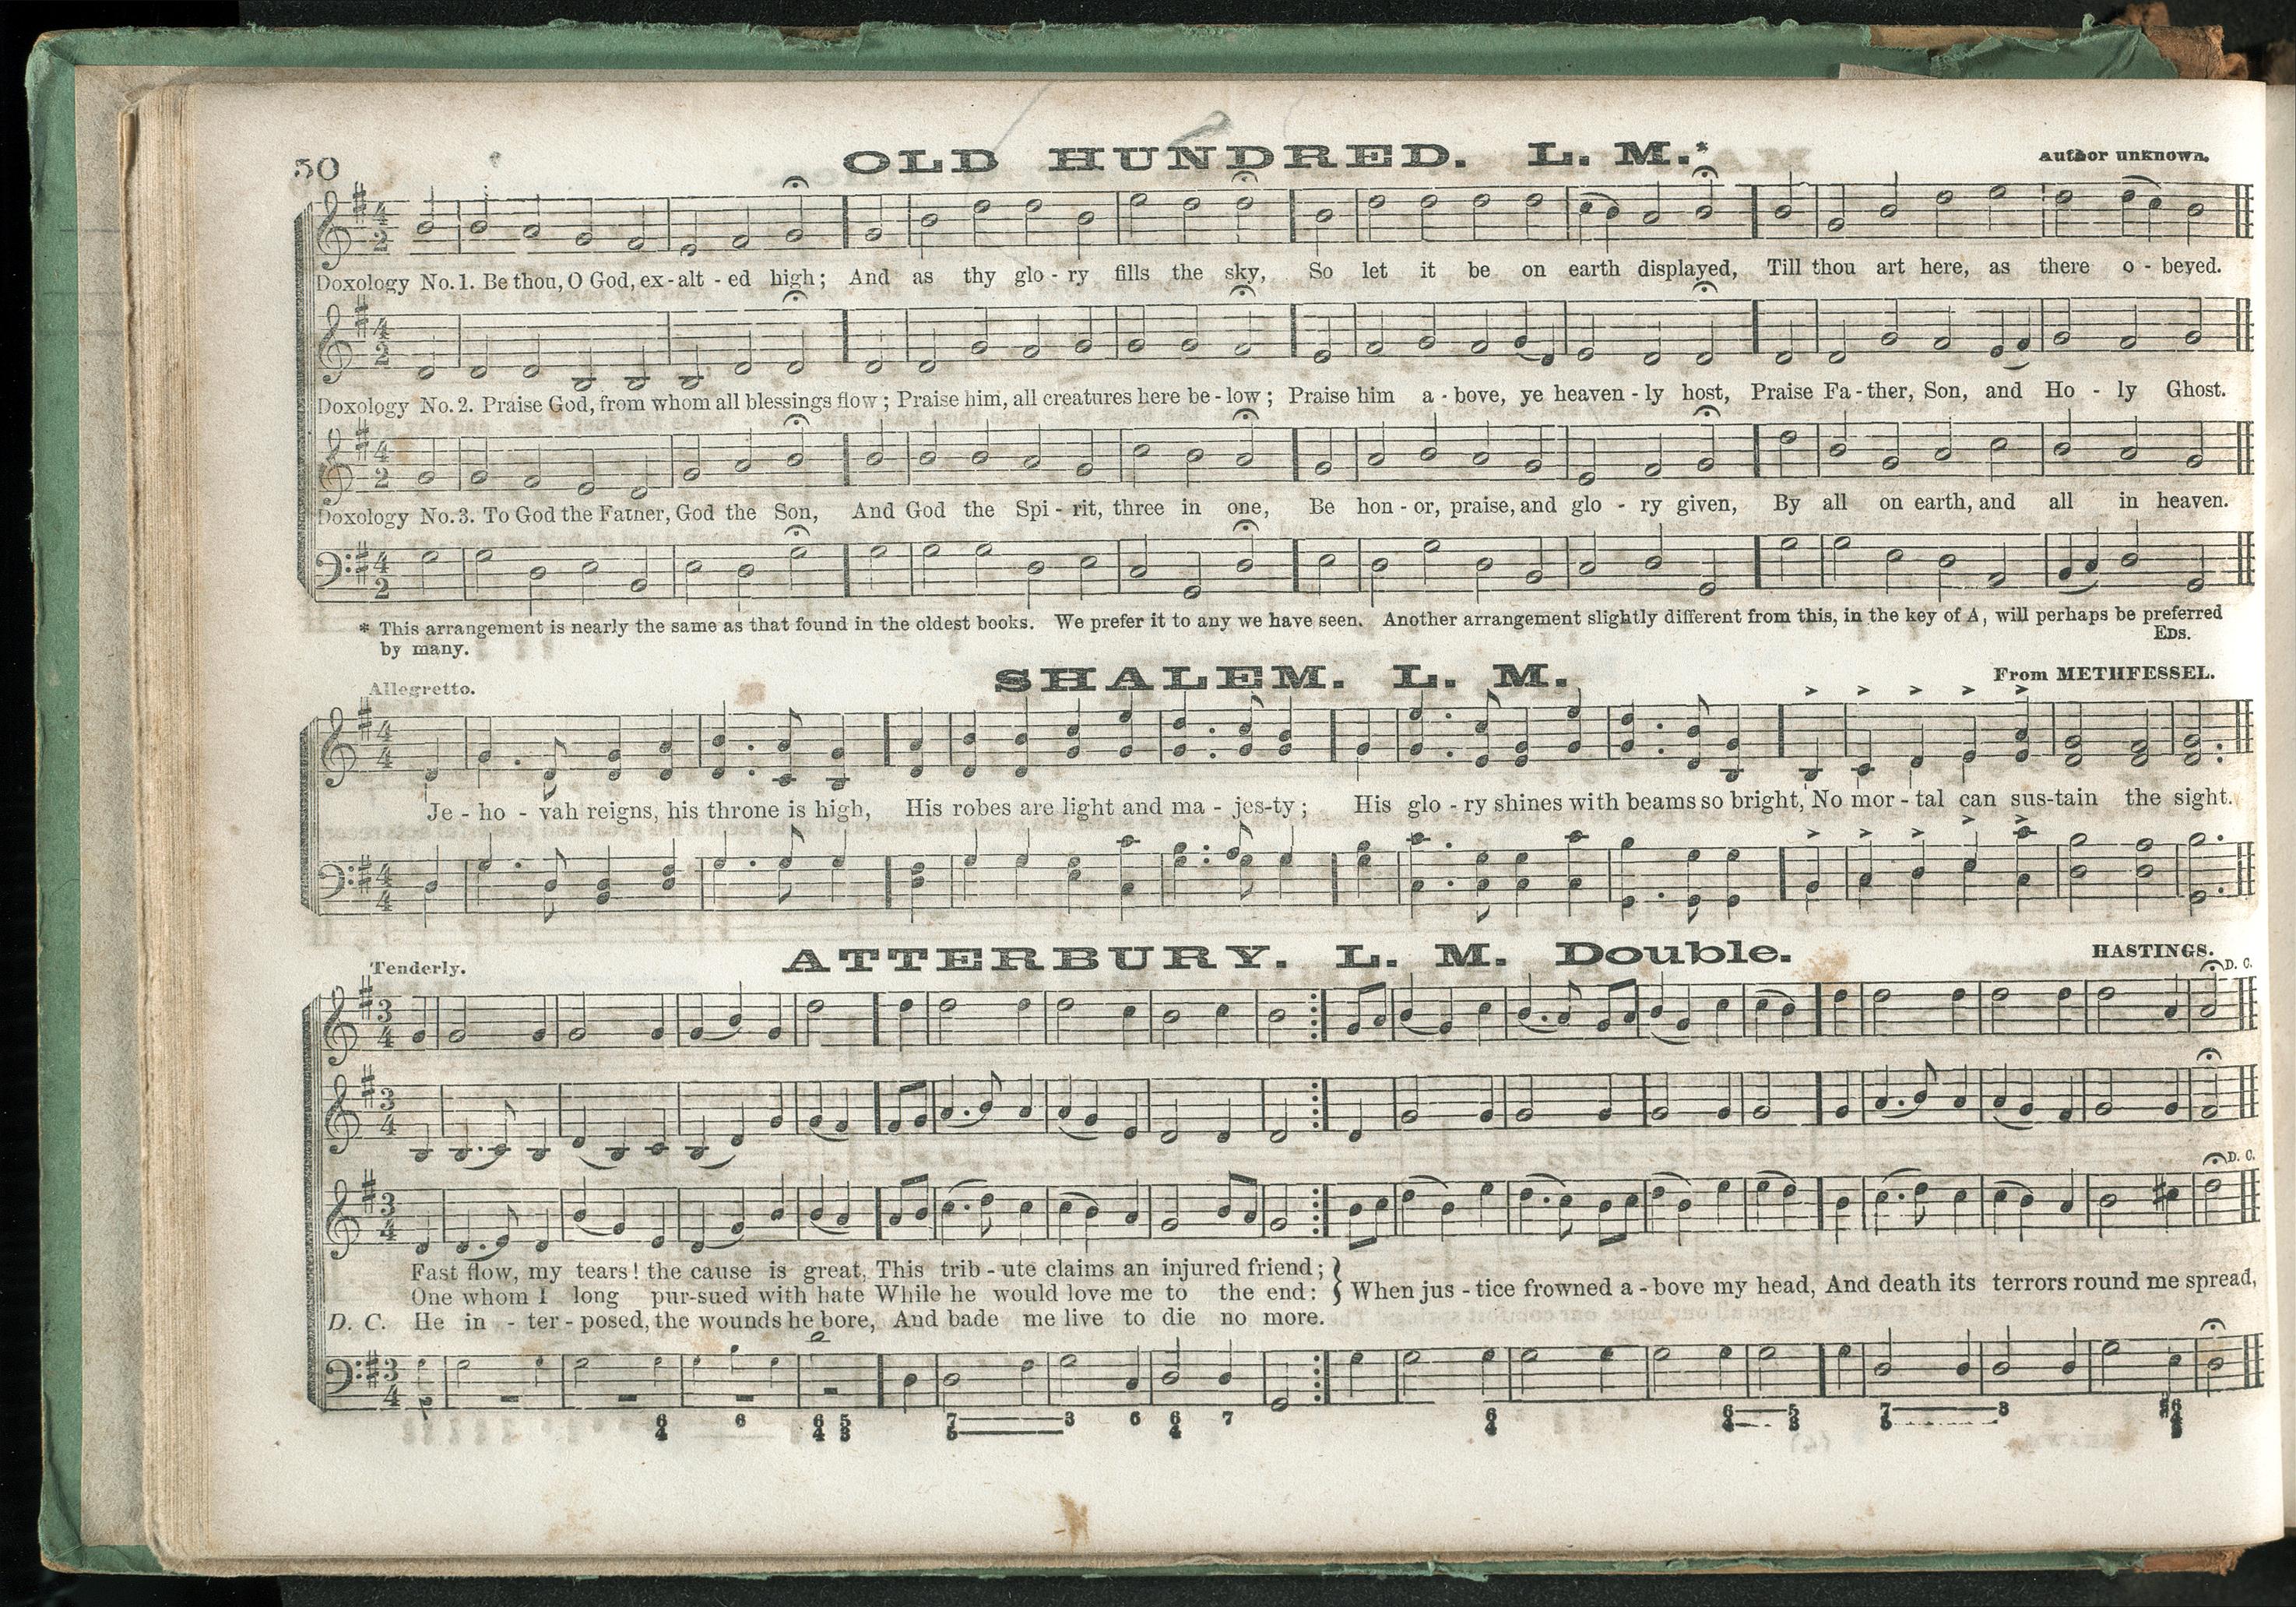 50
OLD HUNDRED. L. M.*
Author unknown.
4 2
Doxology No. 1. Be thou, O God, ex-alt-ed high; And as thy glo-ry fills the sky, So let it be on earth displayed, Till thou art here, as there o-beyed.
4 2
Doxology No. 2. Praise God, from whom all blessings flow; Praise him, all creatures here be-low; Praise him a-bove, ye heaven-ly host, Praise Fa-ther, Son, and Ho-ly Ghost.
4 2
Doxology No. 3. To God the Father, God the Son, And God the Spi-rit, three in one, Be hon-or, praise, and glo-ry given, By all on earth, and all in heaven.
4 2
* This arrangement is nearly the same as that found in the oldest books. We prefer it to any we have seen. Another arrangement slightly different from this, in the key of A, will perhaps be preferred
by many.
EDS.
SHALEM. L. M.
Allegretto.
From METHFESSEL.
4 4
Je-ho-vah reigns, his throne is high, His robes are light and ma-jes-ty; His glo-ry shines with beams so bright, No mor-tal can sus-tain the sight.
4 4
ATTERBURY. L. M. Double.
Tenderly.
HASTINGS.
D. C.
3 4
3 4
D. C.
3 4
Fast flow, my tears! the cause is great, This trib-ute claims an injured friend;
One whom I long pur-sued with hate While he would love me to the end: } When jus-tice frowned a-bove my head, And death its terrors round me spread,
D. C. He in-ter-posed, the wounds he bore, And bade me live to die no more.
3 4
6 4 6 6 4 5 3 7 5 3 6 6 4 7 6 4 6 4 5 3 7 5 3